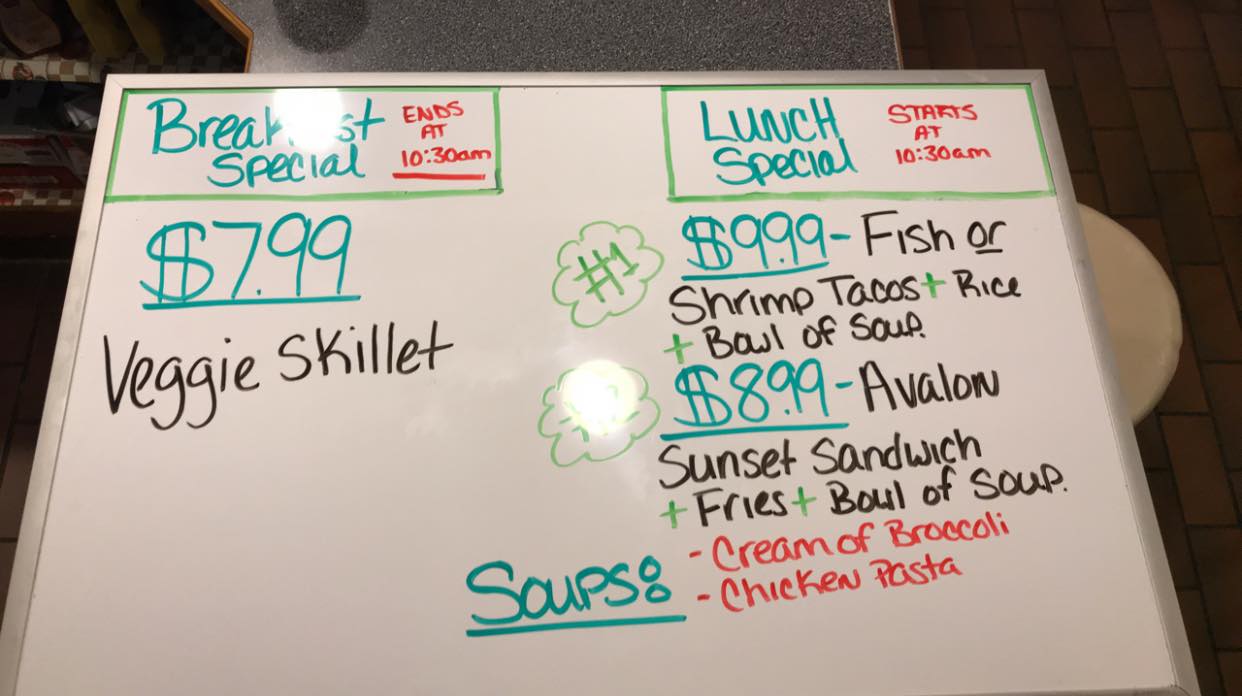 Breakfast
Special
ENDS
AT
10:30am
$7.99
Veggie Skillet
LUNCH
Special
STARTS
AT
10:30am
#1
$9.99 - Fish or
Shrimp Tacos + Rice
+ Bowl of Soup.
$8.99 - Avalon
Sunset Sandwich
+ Fries + Bowl of Soup.
Soups:
- Cream of Broccoli
- Chicken Pasta